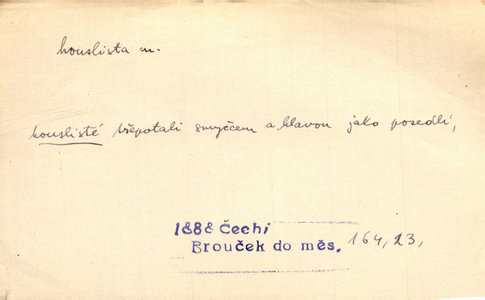 houslista m.
houslisté třepotali smyčcem a hlavou jako posedlí,
1888 Čechi
Brouček do měs. 164, 23,